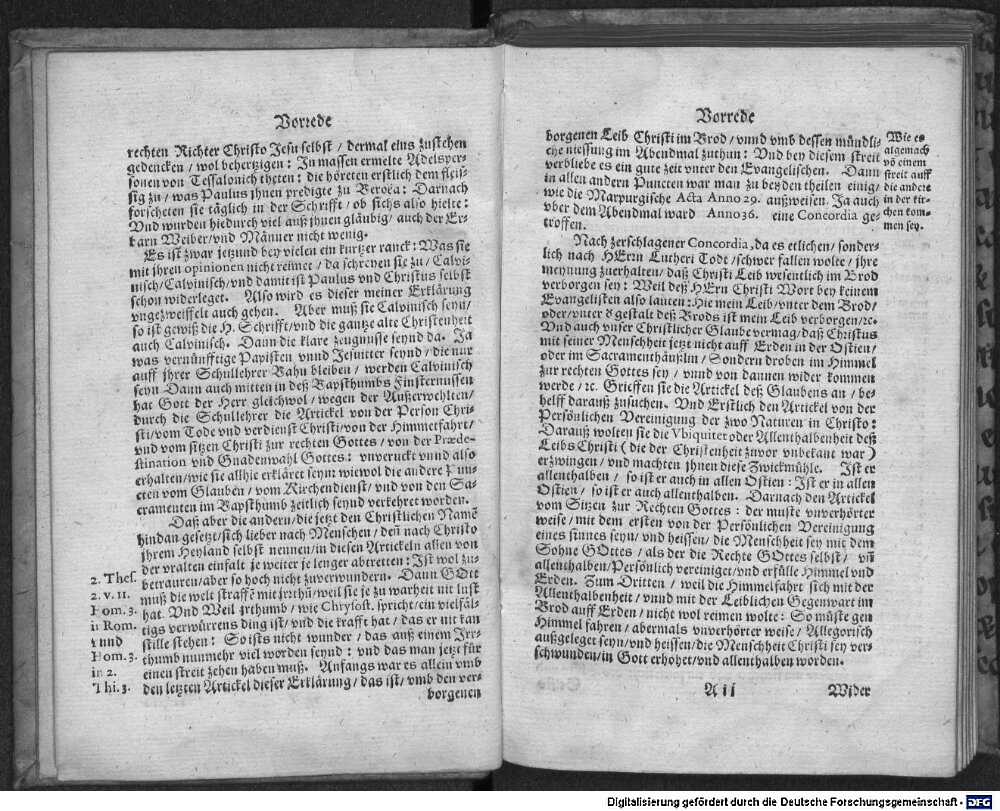 Vorrede
rechten Richter Christo Jesu selbst / dermal eins zustehen
gedencken / wol behertzigen: Inmassen ermelte Adelsper-
sonen von Tessalonich theten: die höreten erstlich dem fleis-
sig zu / was Paulus jhnen predigte zu Beroëa: Darnach
forscheten sie täglich in der Schrifft / ob sichs also hielte:
Vnd wurden hiedurch viel auß jhnen gläubig / auch der Er-
barn Weiber / vnd Männer nicht wenig.
Es ist zwar jetzund bey vielen ein kurtzer ranck: Was sie
mit jhren opinionen nicht reimet / da schreyen sie zu / Calvi-
nisch / Calvinisch / vnd damit ist Paulus vnd Christus selbst
schon widerleget. Also wird es dieser meiner Erklärung
vngezweiffelt auch gehen. Aber muß sie Calvinisch seyn /
so ist gewiß die H. Schrifft / vnd die gantze alte Christenheit
auch Calvinisch. Dann die klare zeugnusse seynd da. Ja
was vernünfftige Papisten vnnd Jesuitter seynd / die nur
auff jhrer Schullehrer Bahn bleiben / werden Calvinisch
seyn. Dann auch mitten in deß Bapsthumbs Finsternussen
hat Gott der Herr gleichwol / wegen der Außerwehlten /
durch die Schullehrer die Artickel von der Person Chri-
sti / vom Tode vnd verdienst Christi / von der Himmelfahrt /
vnd vom sitzen Christi zur rechten Gottes / von der Præde-
stination vnd Gnadenwahl Gottes: vnverruckt vnnd also
erhalten / wie sie allhie erkläret seyn: wiewol die andere Pun-
cten vom Glauben / vom Kirchendienst / vnd von den Sa-
cramenten im Bapsthumb zeitlich seynd verkehret worden.
Daß aber die andern / die jetzt den Christlichen Namē
hindan gesetzt / sich lieber nach Menschen / deñ nach Christo
jhrem Heyland selbst nennen / in diesen Artickeln allen von
der vralten einfalt je weiter je lenger abtretten: Ist wol zu-
betrauren / aber so hoch nicht zuverwundern. Dann GOtt
muß die welt straffē mit jrthū / weil sie je zu warheit nit lust
hat. Vnd Weil jrthumb / wie Chrysost. spricht / ein vielfäl-
tigs verwürrens ding ist / vnd die krafft hat / das er nit kan
stille stehen: So ists nicht wunder / das auß einem Irr-
thumb nunmehr viel worden seynd: vnd das man jetzt für
einen streit zehen haben muß. Anfangs war es allein vmb
den letzten Artickel dieser Erklärung / das ist / vmb den ver-
borgenen
2. Thes.
2. v. 11.
Hom. 3.
in Rom.
1 vnd
Hom. 3.
in 2.
Thi. 3.
Vorrede
borgenen Leib Christi im Brod / vnnd vmb dessen mündli-
che niessung im Abendmal zuthun: Vnd bey diesem streit
verbliebe es ein gute zeit vnter den Evangelischen. Dann
in allen andern Puncten war man zu beyden theilen einig /
wie die Marpurgische Acta Anno 29. außweisen. Ja auch
vber dem Abendmal ward Anno 36. eine Concordia ge-
troffen.
Wie es
algemach
vō einem
streit auff
die andere
in der kir-
chen kom-
men sey.
Nach zerschlagener Concordia, da es etlichen / sonder-
lich nach HErn Lutheri Todt / schwer fallen wolte / jhre
meynung zuerhalten / daß Christi Leib wesentlich im Brod
verborgen sey: Weil deß HErn Christi Wort bey keinem
Evangelisten also lauten: Hie mein Leib / vnter dem Brod /
oder / vnter d̕ gestalt deß Brods ist mein Leib verborgen / ꝛc.
Vnd auch vnser Christlicher Glaube vermag / daß Christus
mit seiner Menschheit jetzt nicht auff Erden in der Ostien /
oder im Sacramenthäußlin / Sondern droben im Himmel
zur rechten Gottes sey / vnnd von dannen wider kommen
werde / ꝛc. Grieffen sie die Artickel deß Glaubens an / be-
helff darauß zusuchen. Vnd Erstlich den Artickel von der
Persönlichen Vereinigung der zwo Naturen in Christo:
Darauß wolten sie die Vbiquitet oder Allenthalbenheit deß
Leibs Christi (die der Christenheit zuvor vnbekant war)
erzwingen / vnd machten jhnen diese Zwickmühle. Ist er
allenthalben / so ist er auch in allen Ostien: Ist er in allen
Ostien / so ist er auch allenthalben. Darnach den Artickel
vom Sitzen zur Rechten Gottes: der muste vnverhörter
weise / mit dem ersten von der Persönlichen Vereinigung
eines sinnes seyn / vnd heissen / die Menschheit sey mit dem
Sohne GOttes / als der die Rechte GOttes selbst / vñ
allenthalben / Persönlich vereiniget / vnd erfülle Himmel vnd
Erden. Zum Dritten / weil die Himmelfahrt sich mit der
Allenthalbenheit / vnnd mit der Leiblichen Gegenwart im
Brod auff Erden / nicht wol reimen wolte: So müste gen
Himmel fahren / abermals vnverhörter weise / Allegorisch
außgeleget seyn / vnd heissen / die Menschheit Christi sey ver-
schwunden / in Gott erhöhet / vnd allenthalben worden.
A ii
Wider
Digitalisierung gefördert durch die Deutsche Forschungsgemeinschaft - DFG